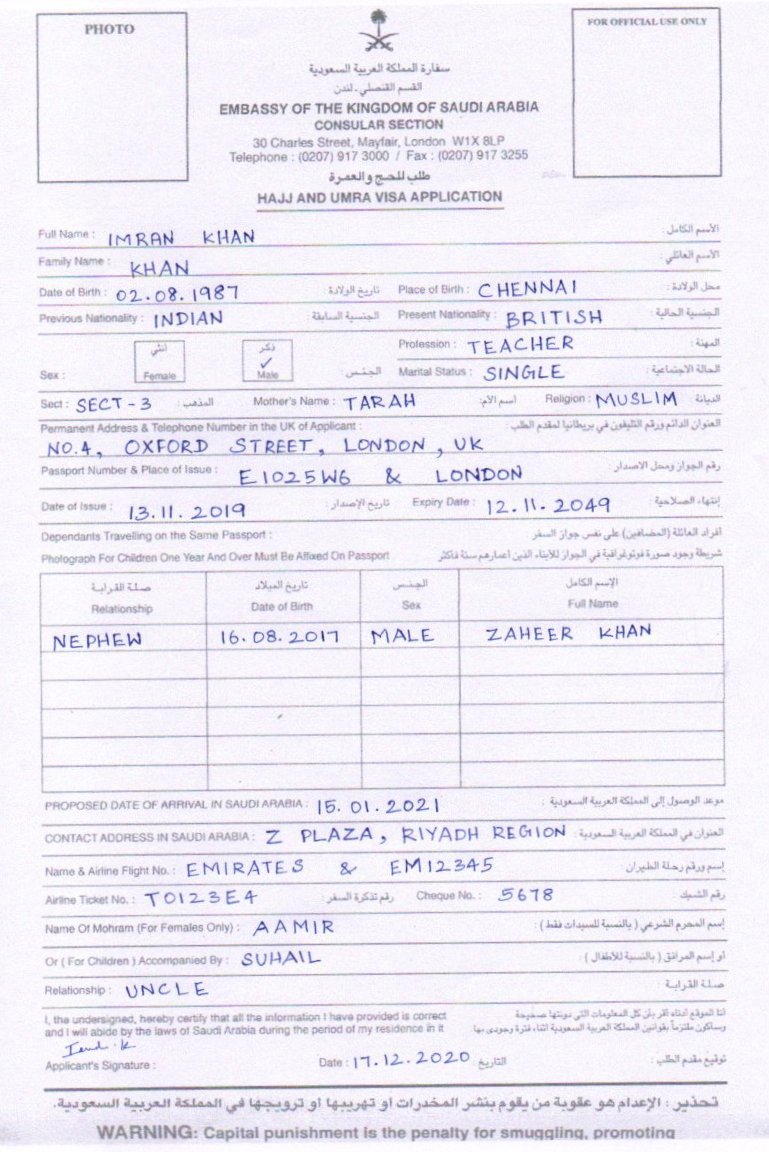 PHOTO
FOR OFFICIAL USE ONLY
سفارة المملكة العربية السعودية
القسم القنصلي - لندن
EMBASSY OF THE KINGDOM OF SAUDI ARABIA
CONSULAR SECTION
30 Charles Street, Mayfair, London W1X 8LP
Telephone : (0207) 917 3000 / Fax : (0207) 917 3255
طلب للحج والعمرة
HAJJ AND UMRA VISA APPLICATION
Full Name : IMRAN KHAN الأسم الكامل :
Family Name : KHAN الأسم العائلي :
Date of Birth : 02.08.1987 تاريخ الولادة : Place of Birth : CHENNAI محل الولادة :
Previous Nationality : INDIAN الجنسية السابقة : Present Nationality : BRITISH الجنسية الحالية :
Profession : TEACHER المهنة :
Sex : أنثي Female ذكر ✓ Male الجنس : Marital Status : SINGLE الحالة الاجتماعية :
Sect : SECT-3 المذهب : Mother's Name : TARAH اسم الأم : Religion : MUSLIM الديانة :
Permanent Address & Telephone Number in the UK of Applicant : العنوان الدائم ورقم التليفون في بريطانيا لمقدم الطلب :
NO.4, OXFORD STREET, LONDON, UK
Passport Number & Place of Issue : E1025W6 & LONDON رقم الجواز ومحل الاصدار :
Date of Issue : 13.11.2019 تاريخ الإصدار : Expiry Date : 12.11.2049 إنتهاء الصلاحية :
Dependants Travelling on the Same Passport : أفراد العائلة (المضافين) على نفس جواز السفر
Photograph For Children One Year And Over Must Be Affixed On Passport شريطة وجود صورة فوتوغرافية في الجواز للأبناء الذين أعمارهم سنة فأكثر
صلة القرابة تاريخ الميلاد الجنس الإسم الكامل
Relationship Date of Birth Sex Full Name
NEPHEW 16.08.2017 MALE ZAHEER KHAN
PROPOSED DATE OF ARRIVAL IN SAUDI ARABIA : 15.01.2021 موعد الوصول إلى المملكة العربية السعودية :
CONTACT ADDRESS IN SAUDI ARABIA : Z PLAZA, RIYADH REGION العنوان في المملكة العربية السعودية :
Name & Airline Flight No. : EMIRATES & EM12345 إسم ورقم رحلة الطيران :
Airline Ticket No. : T0123E4 رقم تذكرة السفر Cheque No. : 5678 رقم الشيك :
Name Of Mohram (For Females Only) : AAMIR إسم المحرم الشرعي ( بالنسبة للسيدات فقط ) :
Or ( For Children ) Accompanied By : SUHAIL أو إسم المرافق ( بالنسبة للأطفال ) :
Relationship : UNCLE صلة القرابة :
I, the undersigned, hereby certify that all the information I have provided is correct أنا الموقع أدناه أقر بأن كل المعلومات التي دونتها صحيحة
and I will abide by the laws of Saudi Arabia during the period of my residence in it وسأكون ملتزماً بقوانين المملكة العربية السعودية اثناء فترة وجودي بها
Applicant's Signature : Date : 17.12.2020 التاريخ : توقيع مقدم الطلب :
تحذير : الإعدام هو عقوبة من يقوم بنشر المخدرات او تهريبها او ترويجها في المملكة العربية السعودية.
WARNING: Capital punishment is the penalty for smuggling, promoting